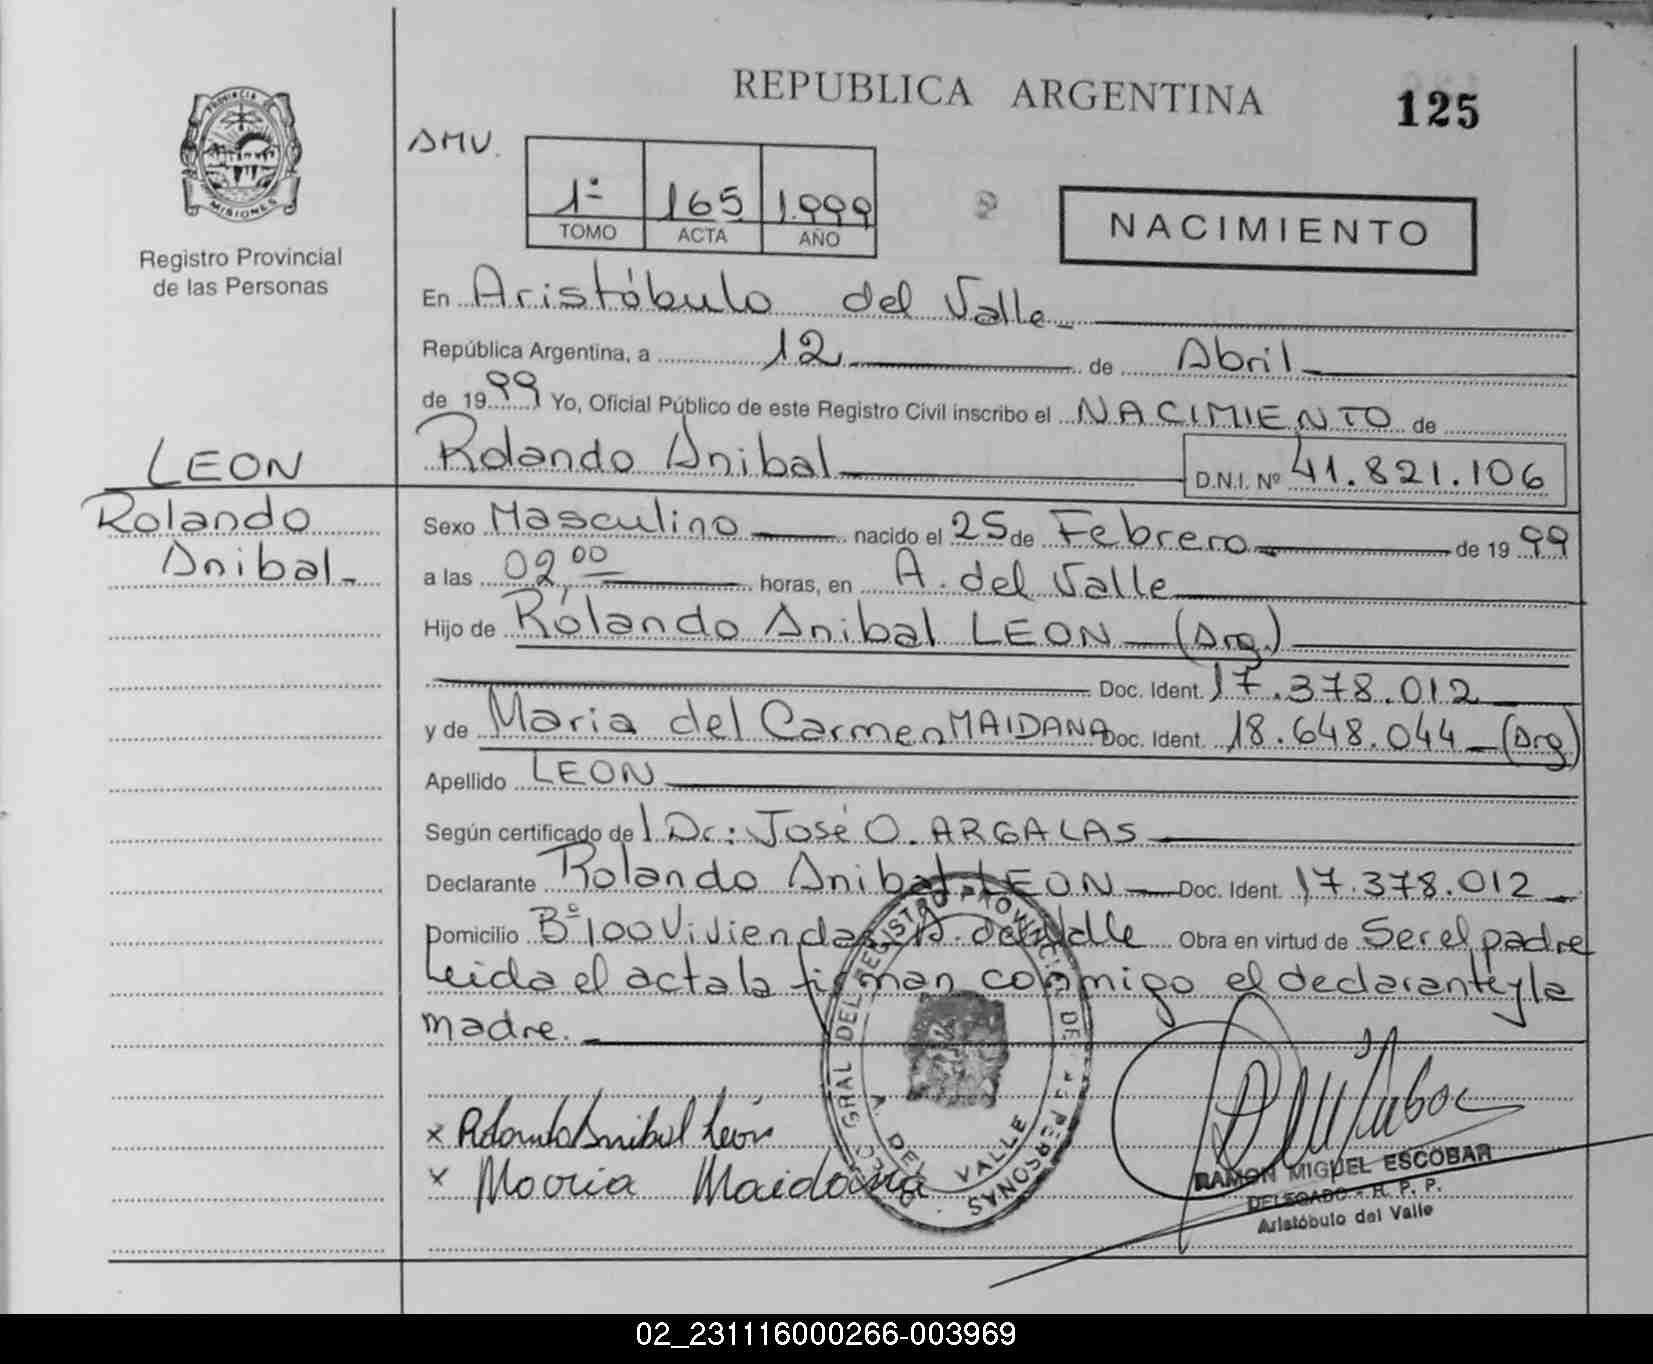 REPUBLICA ARGENTINA
125
PROVINCIA DE
MISIONES
Registro Provincial
de las Personas
1º 165 1.999
TOMO ACTA AÑO
NACIMIENTO
En Aristóbulo del Valle
República Argentina, a 12 de Abril
de 1999 Yo, Oficial Público de este Registro Civil inscribo el NACIMIENTO de
LEON
Rolando Anibal
Rolando Anibal D.N.I. Nº 41.821.106
Sexo Masculino nacido el 25 de Febrero de 1999
a las 02,00 horas, en A. del Valle
Hijo de Rolando Anibal LEON (Arg.)
Doc. Ident. 17.378.012
y de Maria del Carmen MAIDANA Doc. Ident. 18.648.044 (Arg)
Apellido LEON
Según certificado del Dr.: José O. ARGALAS
Declarante Rolando Anibal LEON Doc. Ident. 17.378.012
Domicilio Bº 100 Viviendas A. del Valle Obra en virtud de Ser el padre
Leida el acta la firman conmigo el declarante y la
madre.
x Rolando Anibal León
x Maria Maidana
DEL REGISTRO PROVINCIAL DE LAS PERSONAS
A. DEL VALLE
RAMON MIGUEL ESCOBAR
DELEGADO - R. P. P.
Aristóbulo del Valle
02_231116000266-003969